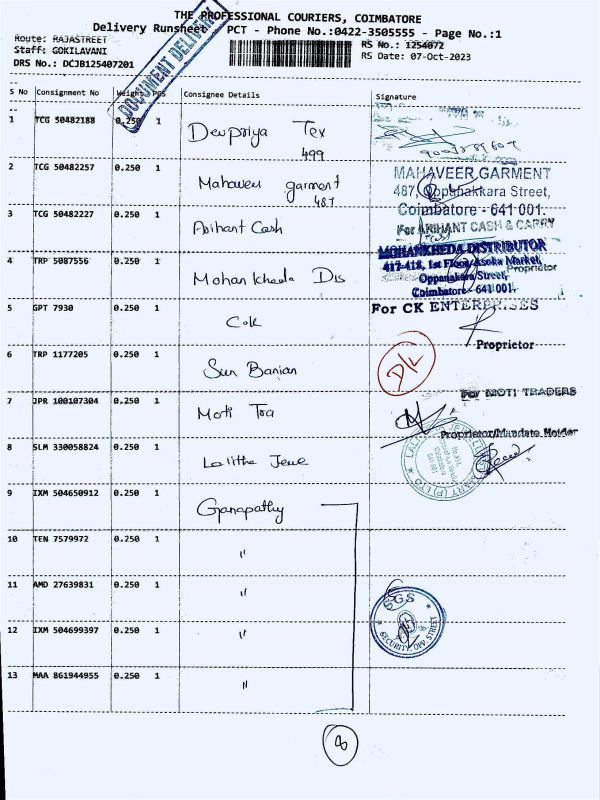 THE PROFESSIONAL COURIERS, COIMBATORE
Delivery Runsheet PCT - Phone No.:0422-3505555 - Page No.:1
Route: RAJASTREET
RS No.: 1254072
Staff: GOKILAVANI
RS Date: 07-Oct-2023
DRS No.: DCJB125407201
DOCUMENT DELIVERY
S No Consignment No Weight PCS Consignee Details Signature
1 TCG 50482188 0.250 1 Devpriya Tex
499
2 TCG 50482257 0.250 1 Mahaveer garment
487
MAHAVEER GARMENT
487, Oppanakkara Street,
Coimbatore - 641 001.
3 TCG 50482227 0.250 1 Arihant Cash
For ARIHANT CASH & CARRY
Proprietor
4 TRP 5087556 0.250 1 Mohan kheda Dis
MOHANKHEDA DISTRIBUTOR
417-418, 1st Floor, Asoka Market,
Oppanakara Street,
Coimbatore - 641 001.
5 GPT 7930 0.250 1
For CK ENTERPRISES
Proprietor
6 TRP 1177205 0.250 1 Sun Banian
D/L
7 JPR 100107304 0.250 1 Moti Tra
For MOTI TRADERS
Proprietor/Mandate Holder
8 SLM 330058824 0.250 1 Lalitha Jewe
9 IXM 504650912 0.250 1 Ganapathy
10 TEN 7579972 0.250 1 "
11 AMD 27639831 0.250 1 "
12 IXM 504699397 0.250 1 "
SGS
SECURITY, OPP. STREET
13 MAA 861944955 0.250 1 "
8